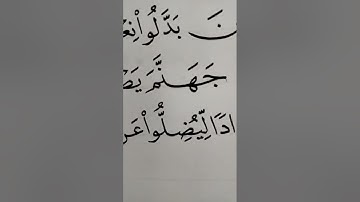 نَ بَدَّلُوا۟ نِعْـ
جَهَنَّمَ يَصْـ
ادًا لِّيُضِلُّوا۟ عَن